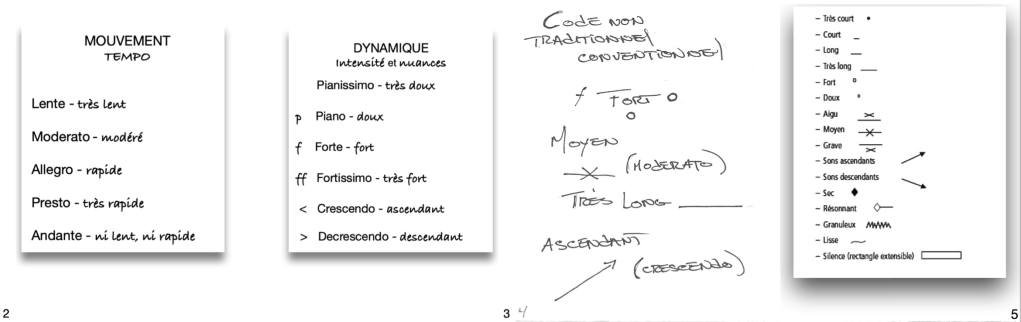 MOUVEMENT
TEMPO
Lente - très lent
Moderato - modéré
Allegro - rapide
Presto - très rapide
Andante - ni lent, ni rapide
2
DYNAMIQUE
Intensité et nuances
Pianissimo - très doux
p Piano - doux
f Forte - fort
ff Fortissimo - très fort
< Crescendo - ascendant
> Decrescendo - descendant
3
CODE NON
TRADITIONNEL/
CONVENTIONNEL/
f FORT
MOYEN
(MODERATO)
TRÈS LONG
ASCENDANT
(CRESCENDO)
4
– Très court
– Court
– Long
– Très long
– Fort
– Doux
– Aigu
– Moyen
– Grave
– Sons ascendants
– Sons descendants
– Sec
– Résonnant
– Granuleux
– Lisse
– Silence (rectangle extensible)
5